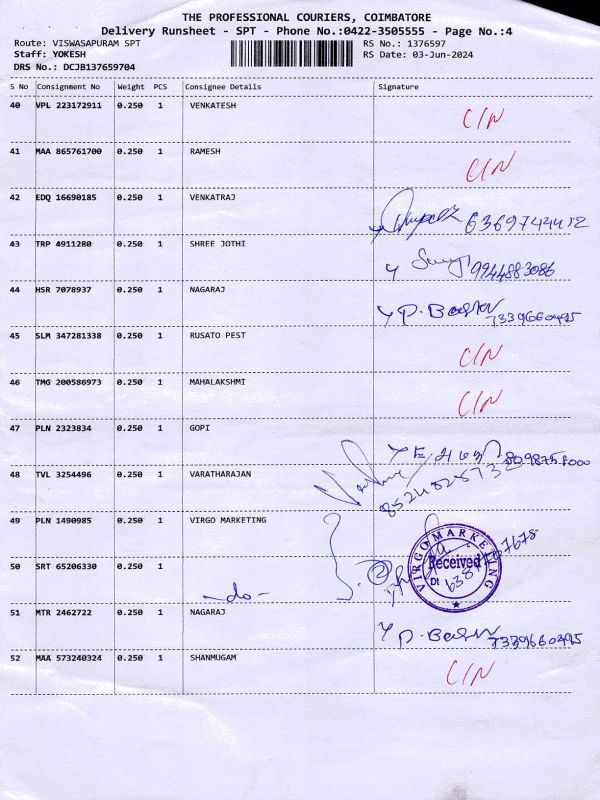 THE PROFESSIONAL COURIERS, COIMBATORE
Delivery Runsheet - SPT - Phone No.:0422-3505555 - Page No.:4
Route: VISWASAPURAM SPT RS No.: 1376597
Staff: YOKESH RS Date: 03-Jun-2024
DRS No.: DCJB137659704
S No Consignment No Weight PCS Consignee Details Signature
40 VPL 223172911 0.250 1 VENKATESH C/N
41 MAA 865761700 0.250 1 RAMESH C/N
42 EDQ 16690185 0.250 1 VENKATRAJ 6369744412
43 TRP 4911280 0.250 1 SHREE JOTHI 9944883086
44 HSR 7078937 0.250 1 NAGARAJ 7339660495
45 SLM 347281338 0.250 1 RUSATO PEST C/N
46 TMG 200586973 0.250 1 MAHALAKSHMI C/N
47 PLN 2323834 0.250 1 GOPI
48 TVL 3254496 0.250 1 VARATHARAJAN
49 PLN 1490985 0.250 1 VIRGO MARKETING
VIRGO MARKETING
Received
Dt
50 SRT 65206330 0.250 1 -do-
51 MTR 2462722 0.250 1 NAGARAJ 7339660495
52 MAA 573240324 0.250 1 SHANMUGAM C/N